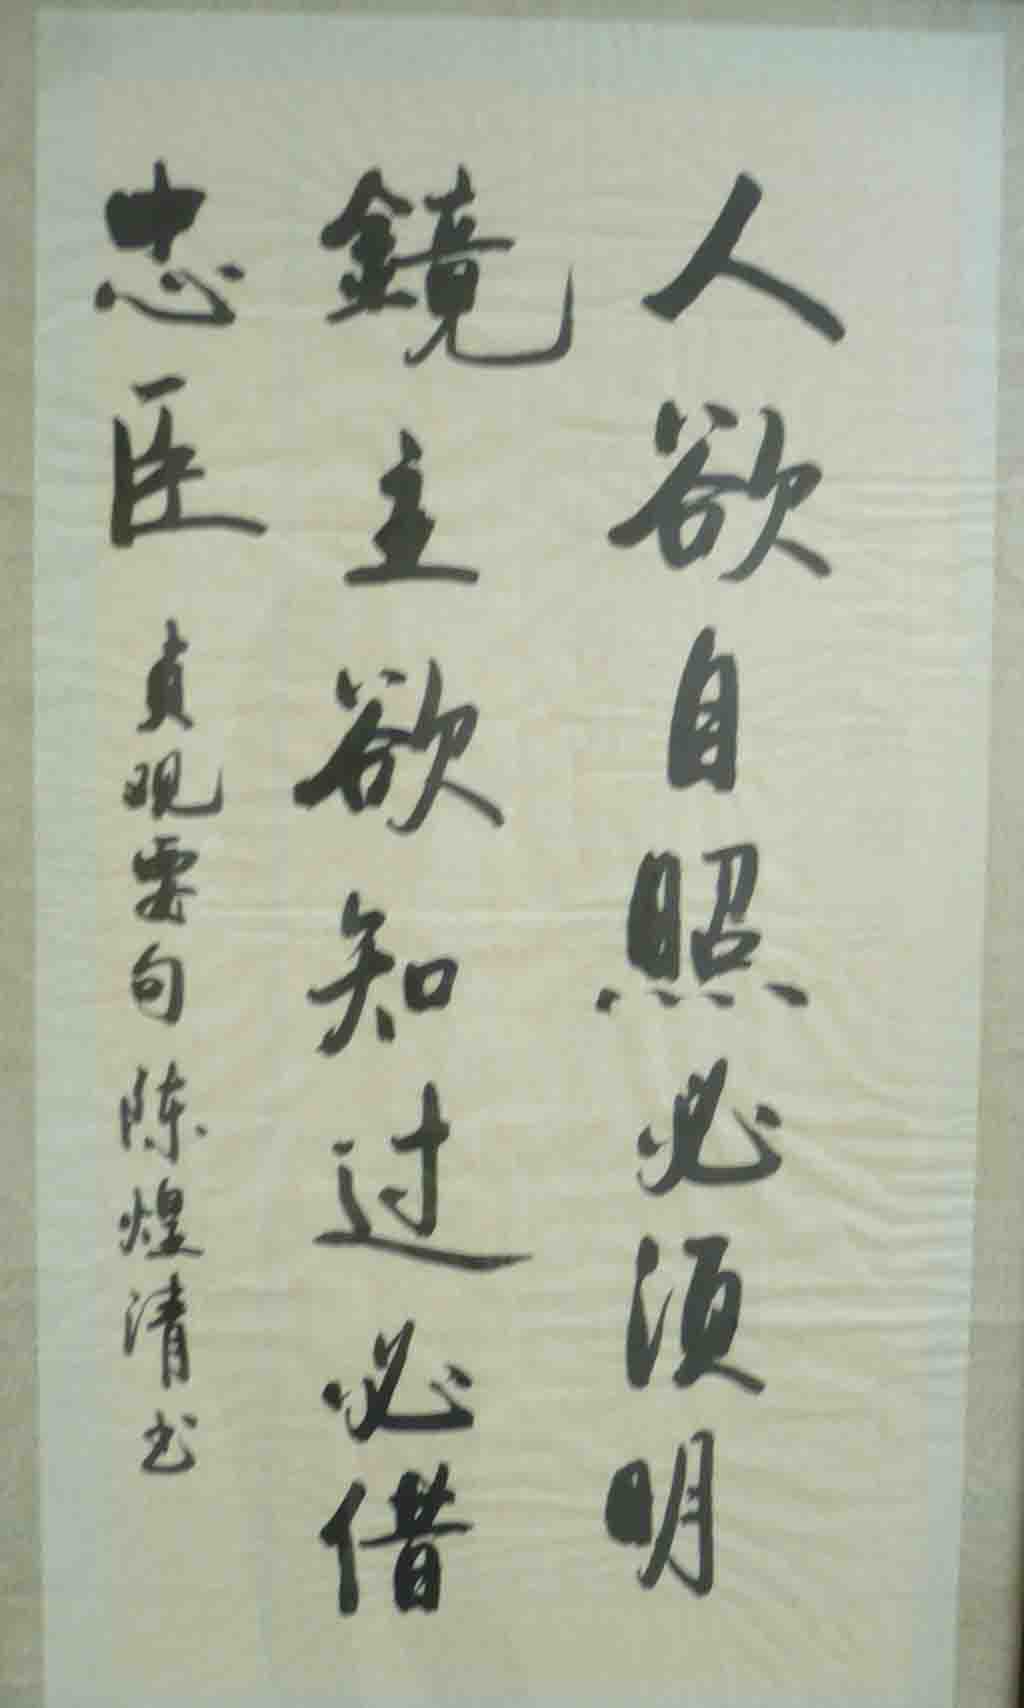 人欲自照必须明
鏡主欲知过必借
忠臣
贞观要句 陈煌清书